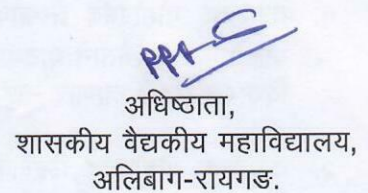 अधिष्ठाता,
शासकीय वैद्यकीय महाविद्यालय,
अलिबाग-रायगड.